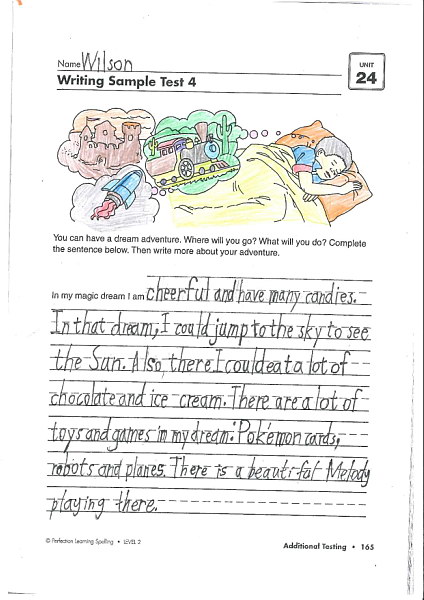 Name Wilson
UNIT
24
Writing Sample Test 4
You can have a dream adventure. Where will you go? What will you do? Complete
the sentence below. Then write more about your adventure.
In my magic dream I am cheerful and have many candies.
In that dream, I could jump to the sky to see
the Sun. Also, there I could eat a lot of
chocolate and ice cream. There are a lot of
toys and games in my dream: Pokémon cards,
robots and planes. There is a beautiful Melody
playing there.
© Perfection Learning Spelling • LEVEL 2
Additional Testing • 165